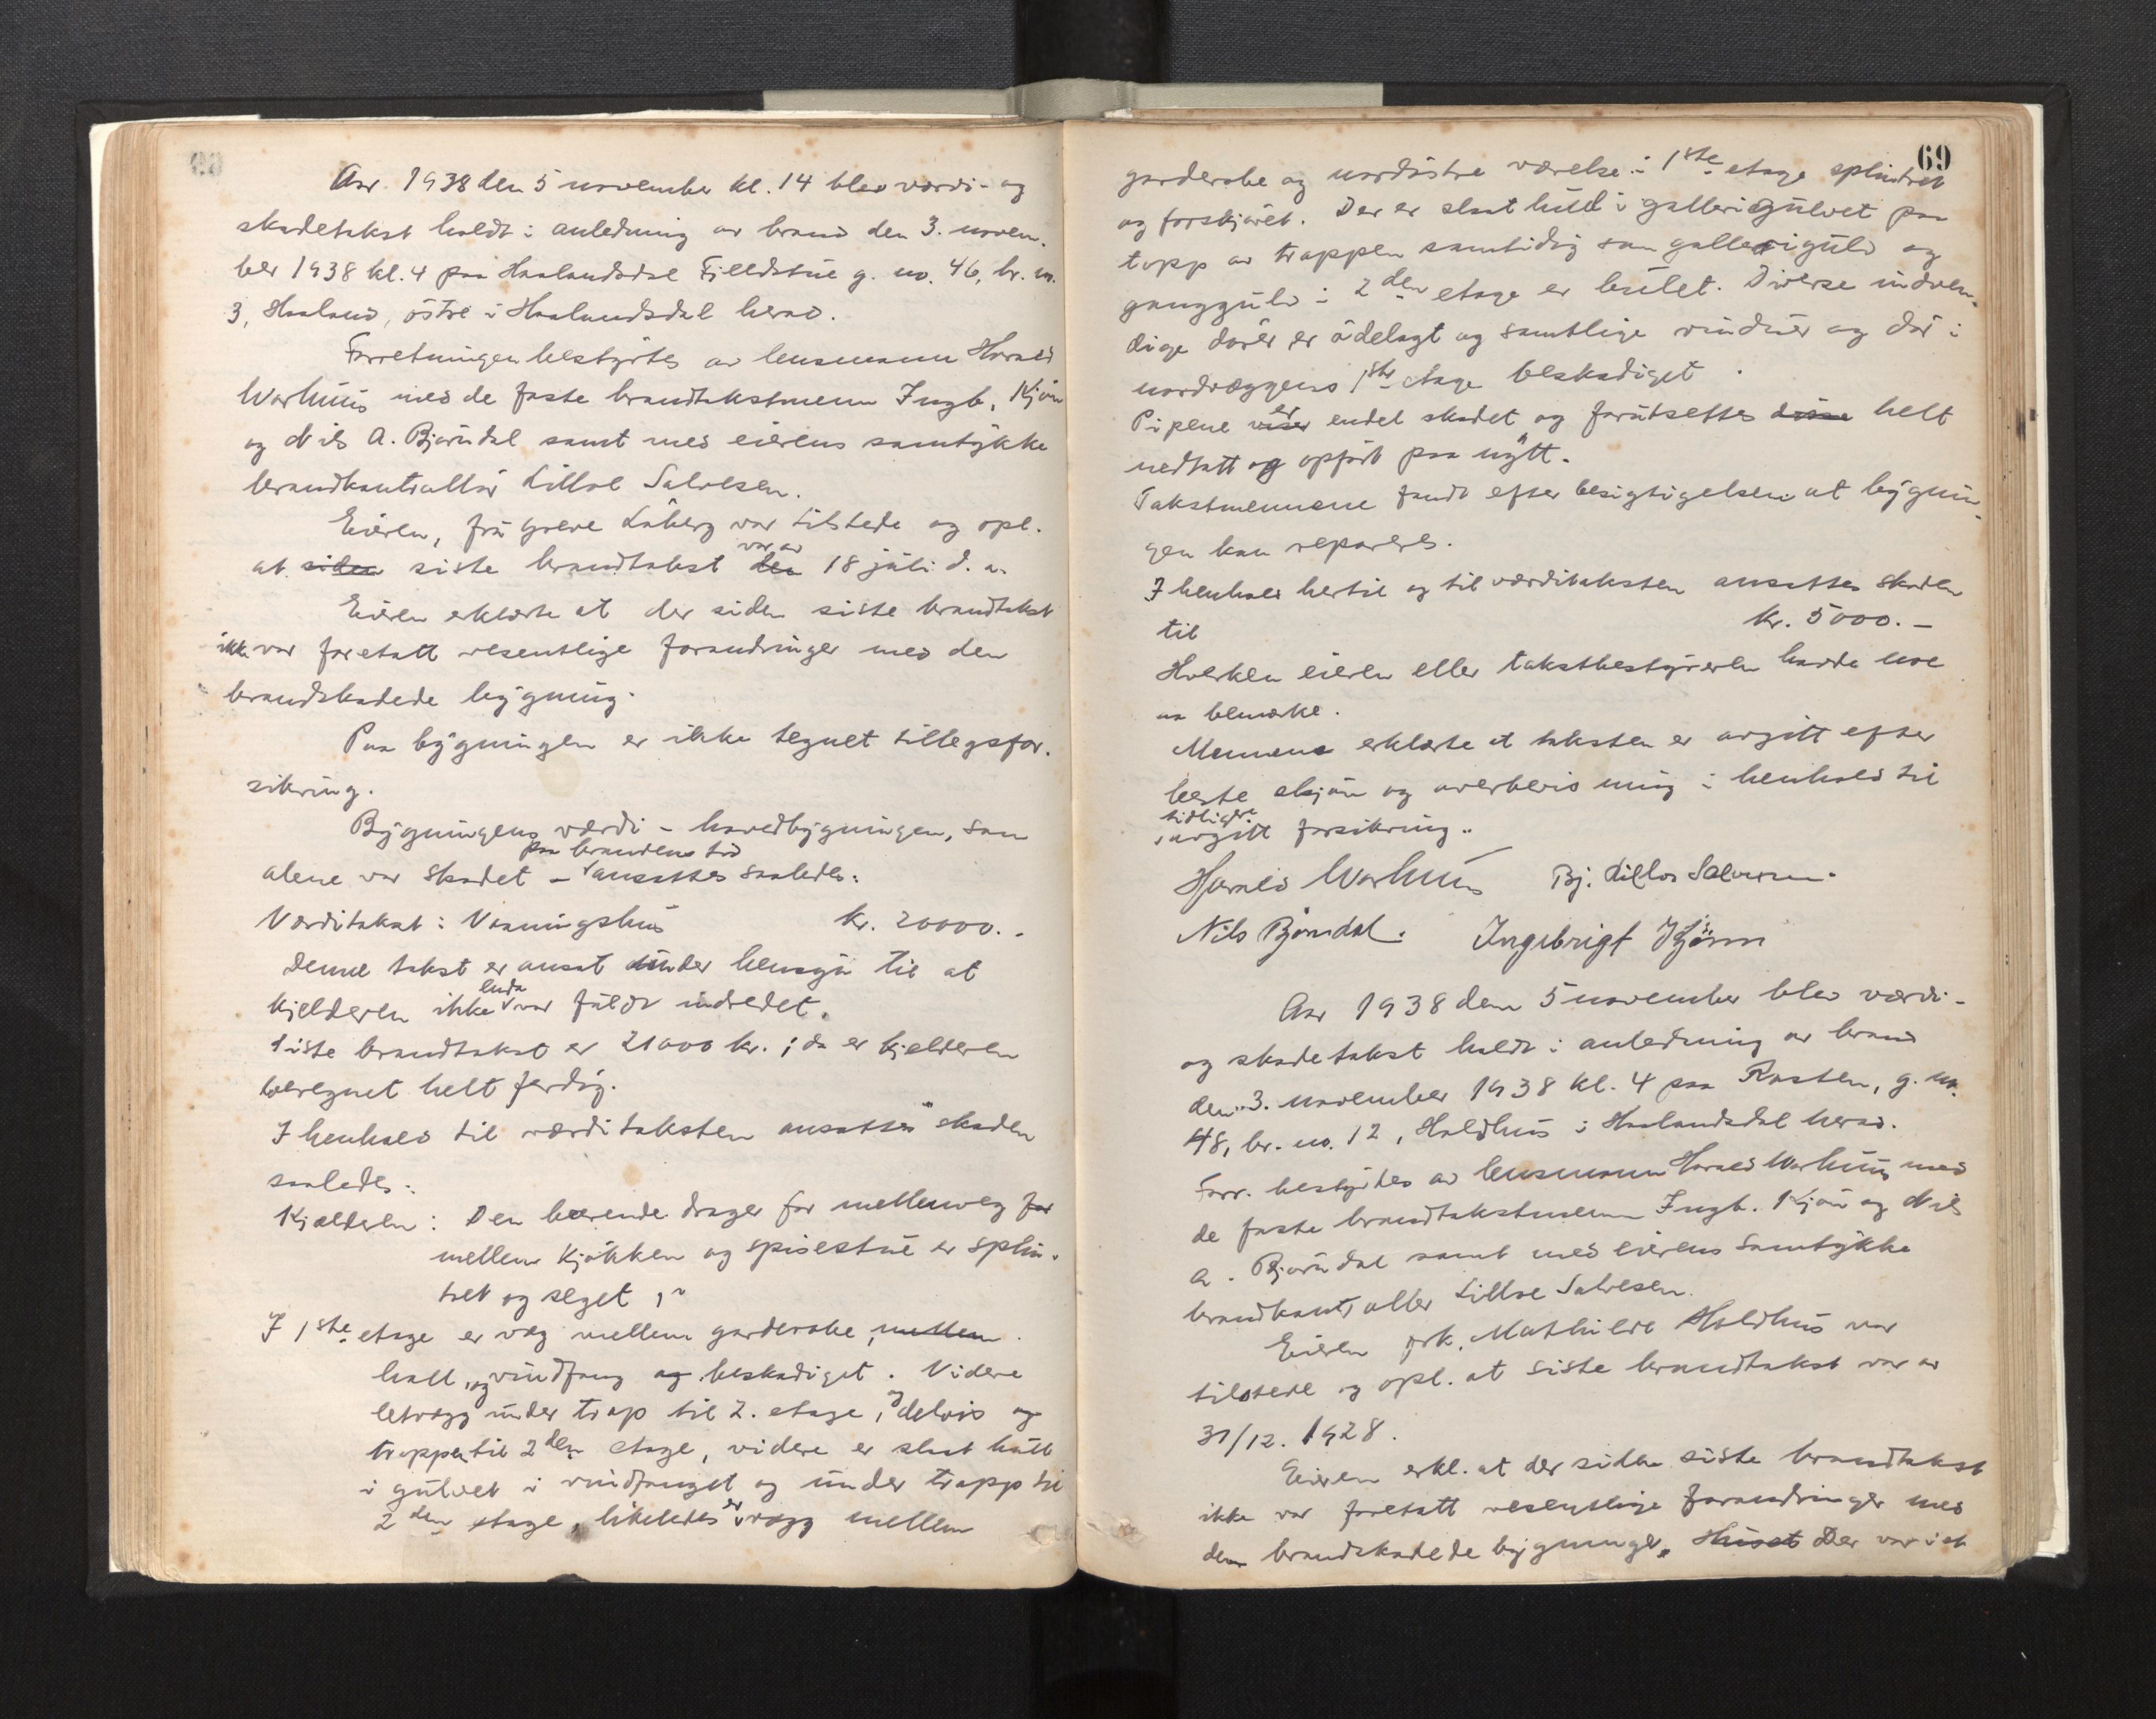 Aar 1938 den 5 november kl. 14 blev værdi- og
skadetakst holdt i anledning av brand den 3. novem-
ber 1938 kl. 4 paa Haalandsdal Fjeldstue g. no. 46, br. no.
3, Haaland, östre i Haalandsdal herad.
Forretningen bestyrtes av lensmann Harald
Warhuus med de faste brandtakstmenn Ingb. Kjön
og Nils A. Björndal samt med eierens samtykke
brandkontrollör Lilloe Salvesen.
Eieren, fru Greve Låberg var tilstede og opl.
at siden siste brandtakst den var av 18 juli d. a.
Eieren erklærte at der siden siste brandtakst
ikke var foretatt vesentlige forandringer med den
brandskadede bygning.
Paa bygningen er ikke tegnet tillegsfor-
sikring.
Bygningens værdi - hovedbygningen, som
alene var skadet - paa brandens tid ansattes saaledes:
Værditakst: Vaaningshus kr. 20000.-
Denne takst er ansat under hensyn til at
kjelderen ikke enda var fuldt indredet.
Siste brandtakst er 21000 kr.; da er kjelderen
beregnet helt ferdig.
I henhold til værditaksten ansattes skaden
saaledes:
Kjælderen: Den bærende drager for mellemveg for
mellem kjökken og spisestue er splin-
tret og seget,
I 1ste etage er væg mellem garderobe, mellem
hall, og vindfang og beskadiget. Videre
letvægg under trap til 2. etage, og delvis og
trappen til 2den etage, videre er slaat hull
i gulvet i vindfanget og under trapp til
2den etage, likeledes er vægg mellem
69
garderobe og nordöstre værelse i 1ste etage splintret
og forskjövet. Der er slaat hull i gallerigulvet paa
topp av trappen samtidig som gallerigulv og
ganggulv i 2den etage er bulet. Diverse indven-
dige dörer er ödelagt og samtlige vinduer og dör i
nordveggens 1ste etage beskadiget.
Pipene viser er endel skadet og forutsettes disse helt
nedtatt og opfört paa nytt.
Takstmennene fandt efter besigtigelsen at bygnin-
gen kan repareres.
I henhold hertil og til værditaksten ansattes skaden
til kr. 5000.-
Hverken eieren eller takstbestyreren hadde noe
aa bemerke.
Mennene erklærte at taksten er avgitt efter
beste skjön og overbevisning i henhold til
tidligere avgitt forsikring.
Harald Warhuus Bj. Lilloe Salvesen.
Nils Björndal. Ingebrigt Kjönn
Aar 1938 den 5 november blev værdi-
og skadetakst holdt i anledning av brand
den 3. november 1938 kl. 4 paa Rasten, g. no.
48, br. no. 12, Holdhus i Haalandsdal herad.
Forr. bestyrtes av lensmann Harald Warhuus med
de faste brandtakstmenn Ingb. Kjön og Nils
A. Björndal samt med eierens samtykke
brandkontrollör Lilloe Salvesen.
Eieren frk. Mathilde Holdhus var
tilstede og opl. at siste brandtakst var av
31/12. 1928.
Eieren erkl. at der siden siste brandtakst
ikke var foretatt vesentlige forandringer med
den brandskadede bygninger. Huset Der var i et